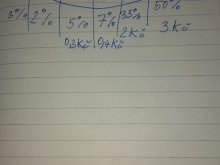 3% 2% 5% 7% 33% 50%
0,3Kč 0,4Kč 2Kč 3Kč